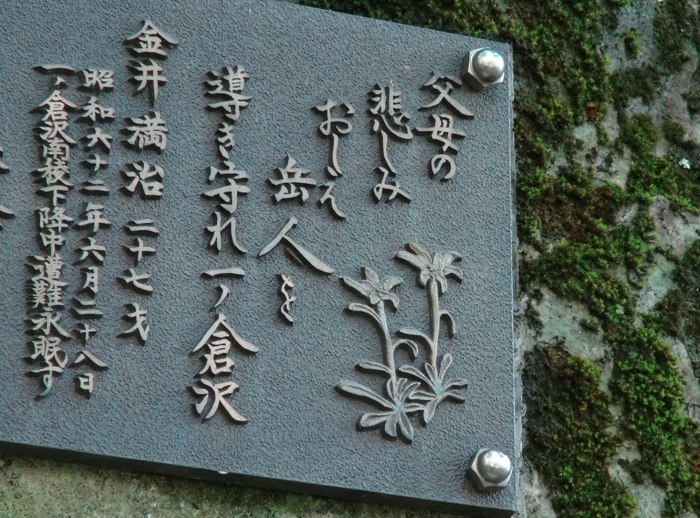 父母の
悲しみ
おしえ
岳人を
導き守れ 一ノ倉沢
金井満治 二十七才
昭和六十二年六月二十八日
一ノ倉沢南稜下降中遭難永眠す